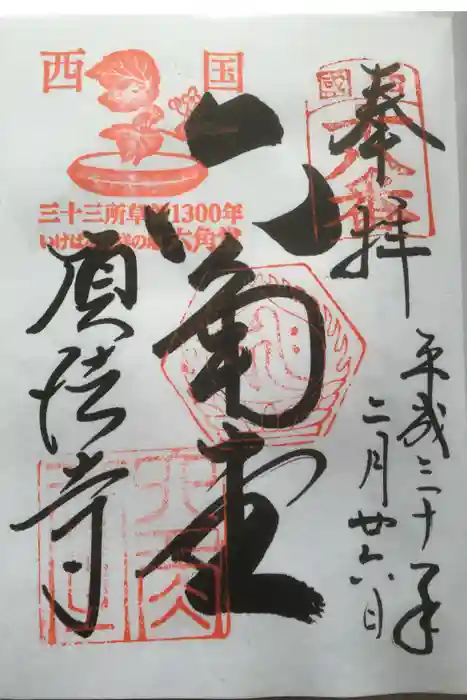 奉拝
平成三十年
二月廿六日
六角堂
頂法寺
西国
三十三所草創1300年
いけばな発祥の地 六角堂